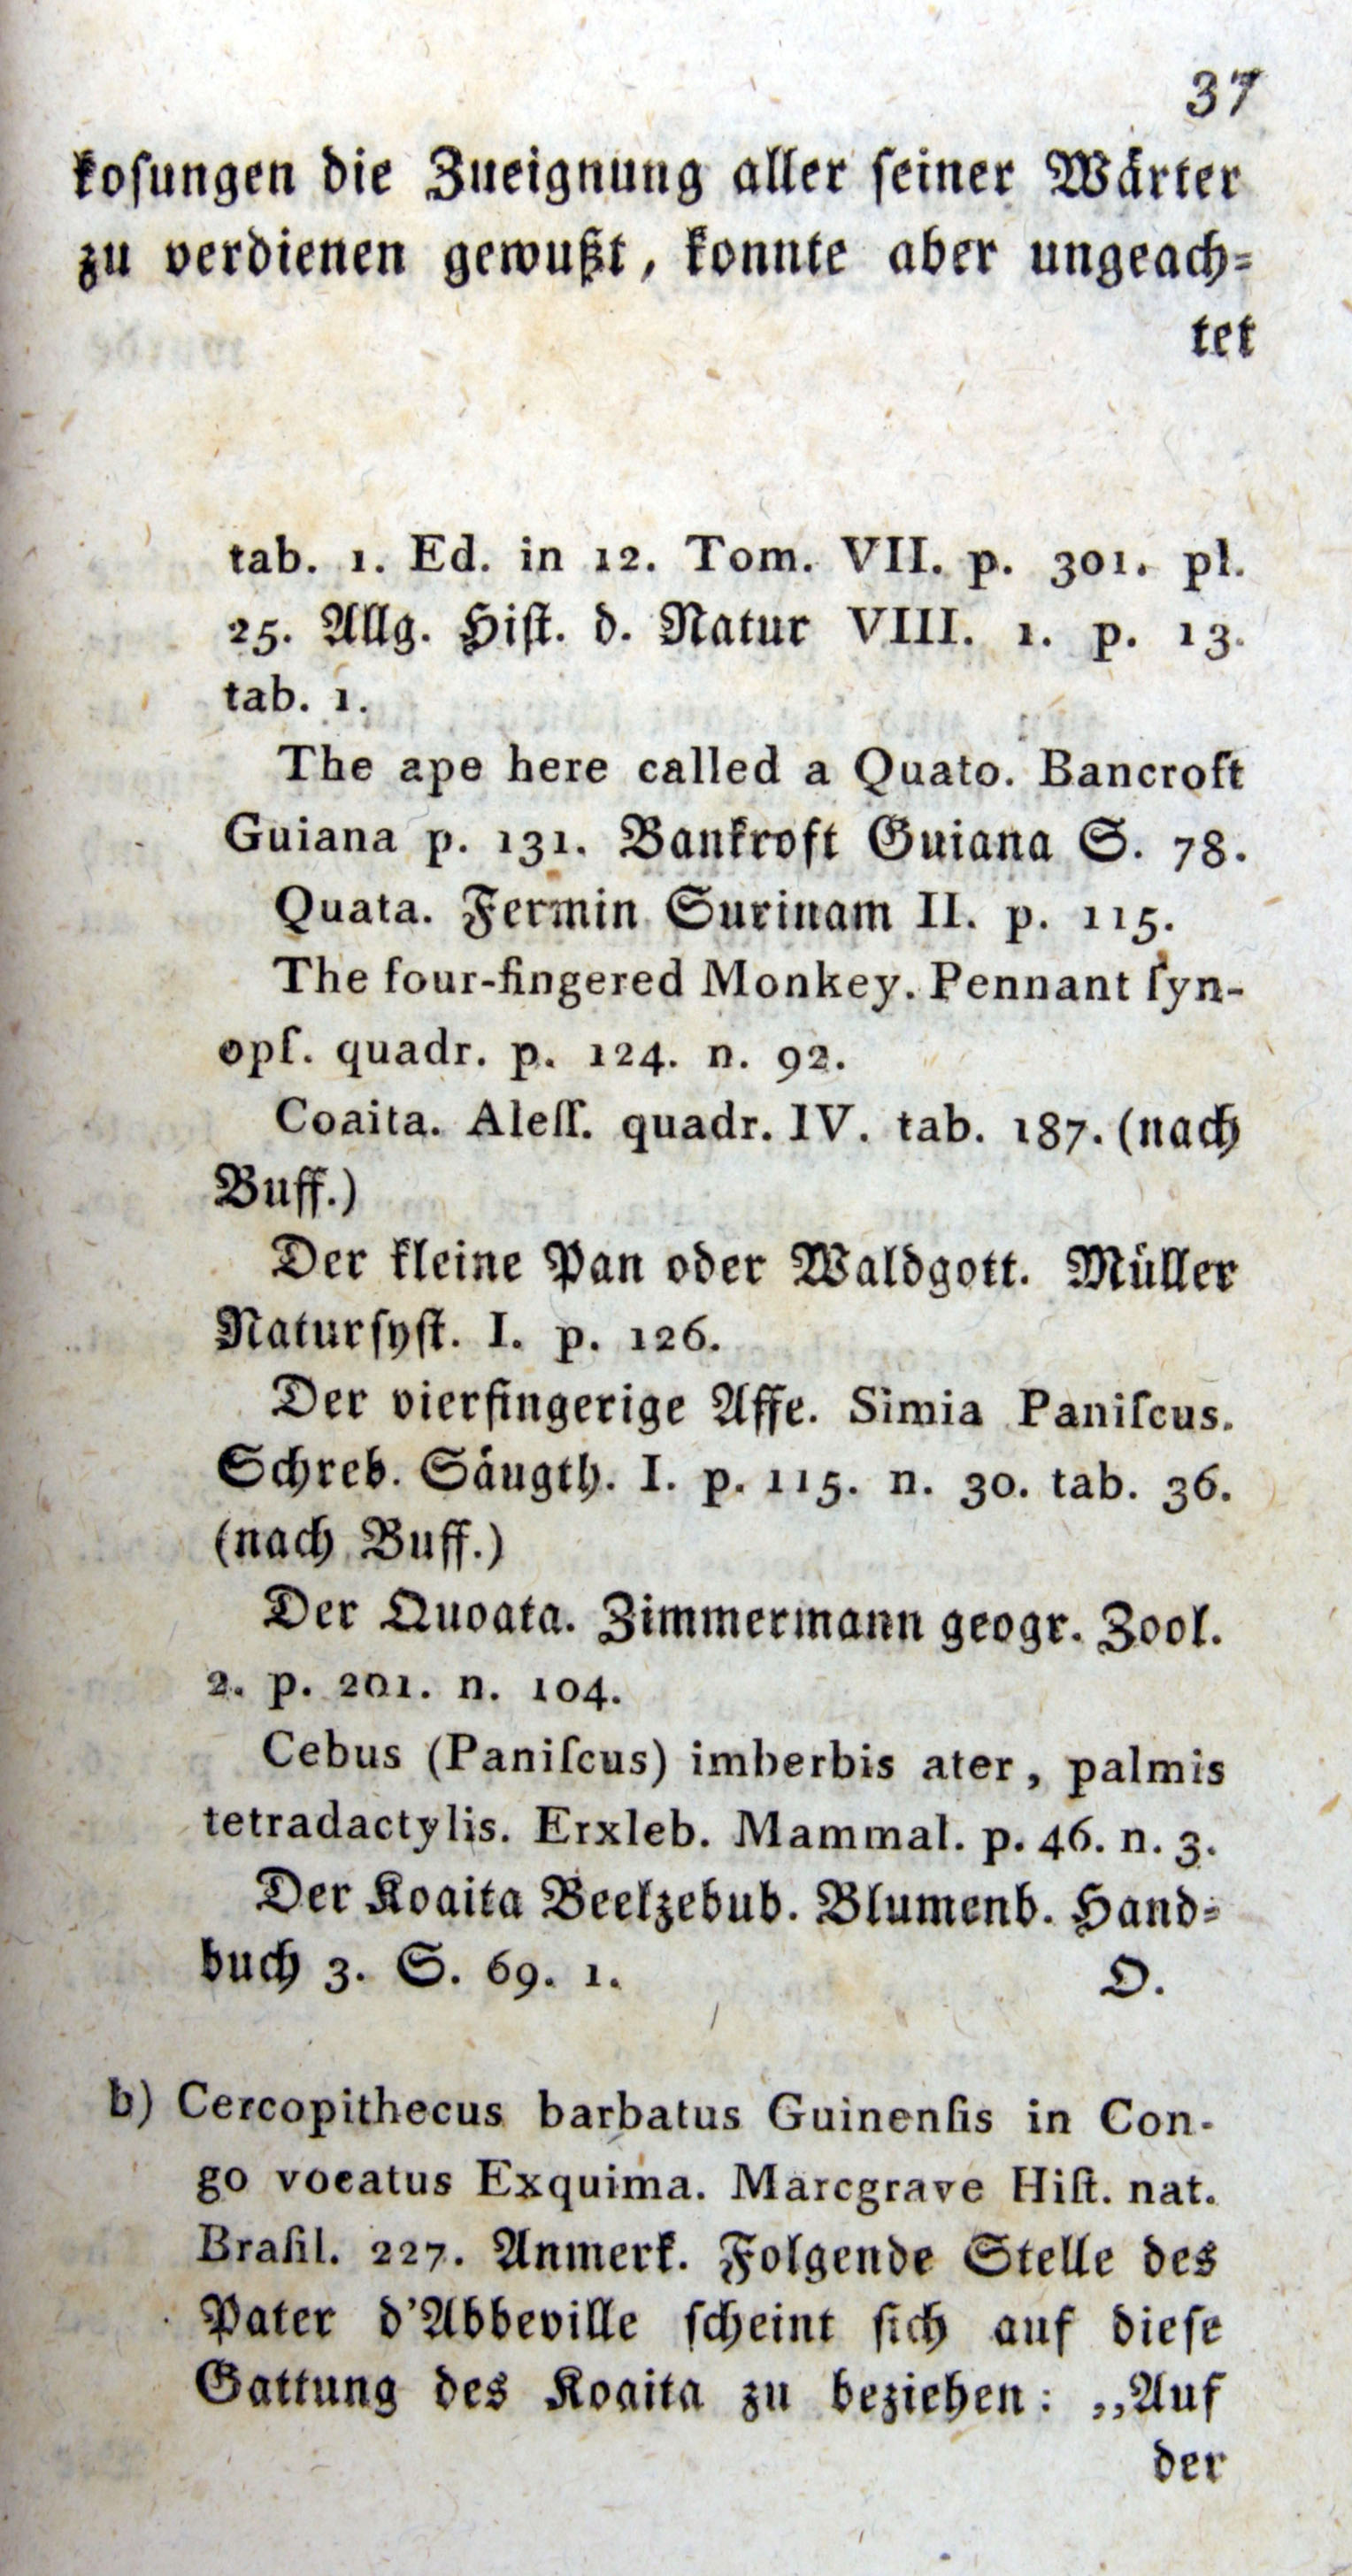 37
koſungen die Zueignung aller ſeiner Wärter
zu verdienen gewußt, konnte aber ungeach-
tet
tab. 1. Ed. in 12. Tom. VII. p. 301. pl.
25. Allg. Hiſt. d. Natur VIII. 1. p. 13.
tab. 1.
The ape here called a Quato. Bancroft
Guiana p. 131. Bankroft Guiana S. 78.
Quata. Fermin Surinam II. p. 115.
The four-fingered Monkey. Pennant ſyn-
opſ. quadr. p. 124. n. 92.
Coaita. Aleſſ. quadr. IV. tab. 187. (nach
Buff.)
Der kleine Pan oder Waldgott. Müller
Naturſyſt. I. p. 126.
Der vierfingerige Affe. Simia Paniſcus.
Schreb. Säugth. I. p. 115. n. 30. tab. 36.
(nach Buff.)
Der Quoata. Zimmermann geogr. Zool.
2. p. 201. n. 104.
Cebus (Paniſcus) imberbis ater, palmis
tetradactylis. Erxleb. Mammal. p. 46. n. 3.
Der Koaita Beelzebub. Blumenb. Hand-
buch 3. S. 69. 1. O.
b) Cercopithecus barbatus Guinenſis in Con-
go vocatus Exquima. Marcgrave Hiſt. nat.
Braſil. 227. Anmerk. Folgende Stelle des
Pater d'Abbeville ſcheint ſich auf dieſe
Gattung des Koaita zu beziehen: „Auf
der